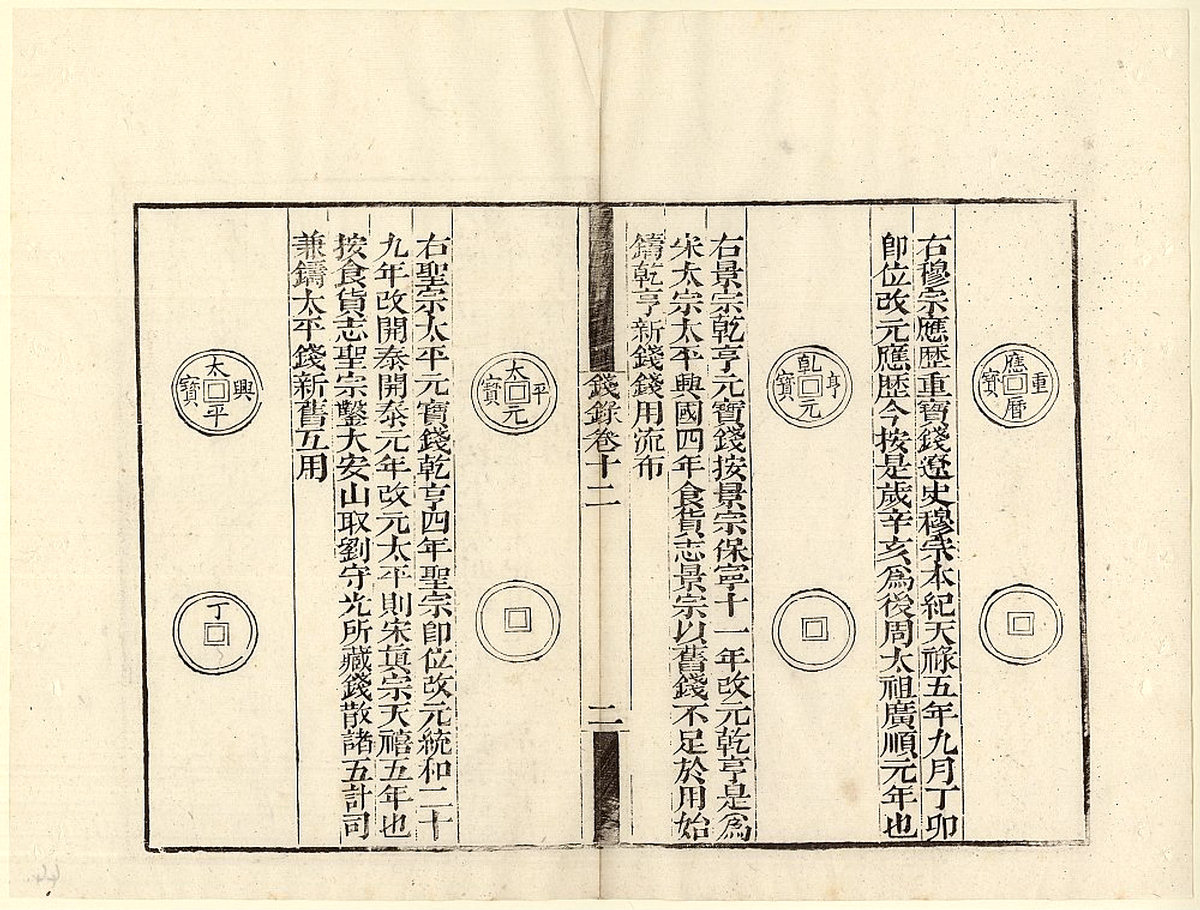 應曆重寶
右穆宗應歴重寶錢遼史穆宗本紀天祿五年九月丁卯
卽位改元應歴今按是歲辛亥爲後周太祖廣順元年也
乹元亨寶
右景宗乾亨元寶錢按景宗保寧十一年改元乾亨是爲
宋太宗太平興國四年食貨志景宗以舊錢不足於用始
鑄乾亨新錢錢用流布
錢錄卷十二
二
太元平寶
右聖宗太平元寶錢乾亨四年聖宗卽位改元統和二十
九年改開泰開泰元年改元太平則宋真宗天禧五年也
按食貨志聖宗鑿大安山取劉守光所藏錢散諸五計司
兼鑄太平錢新舊互用
太平興寶
丁